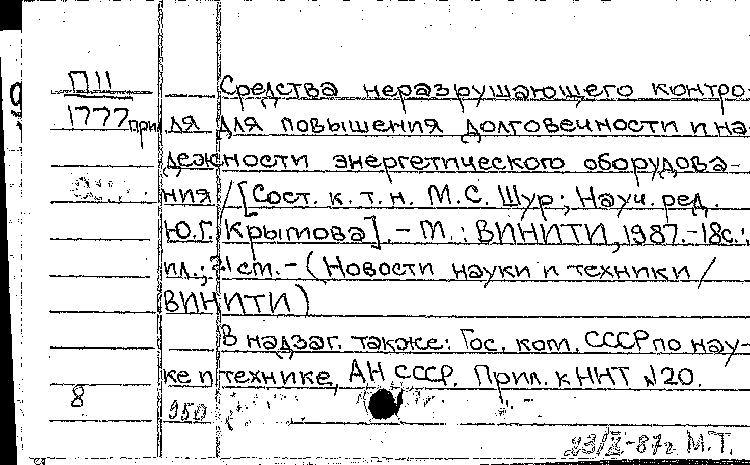 П11
1777 прил
Средства неразрушающего контро-
ля для повышения долговечности и на-
дежности энергетического оборудова-
ния / [Сост. к. т. н. М.С. Шур; Науч. ред.
Ю.Г. Крымова]. - М.: ВИНИТИ, 1987. - 18с.:
ил.; 21 см. - (Новости науки и техники /
ВИНИТИ)
В надзаг. также: Гос. ком. СССР по нау-
ке и технике, АН СССР. Прил. к ННТ №20.
8
950
23/X-87г М.Т.